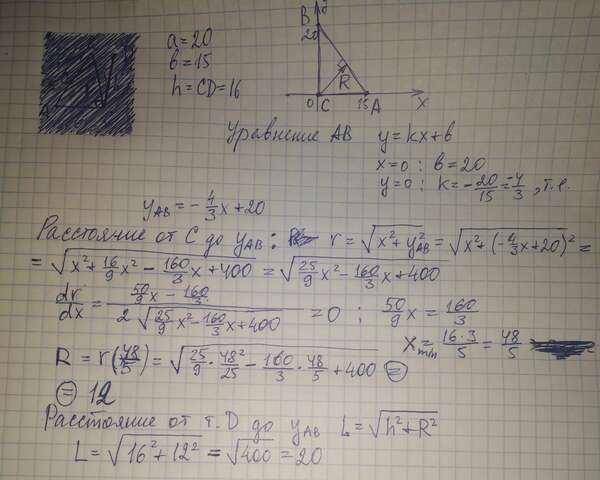 a=20
b=15
h=CD=16
y
B
20
R
0 C 15 A x
Уравнение AB y=kx+b
x=0 : b=20
y=0 : k=-20/15=-4/3, т.е.
y_AB=-4/3x+20
Расстояние от C до y_AB: r=√(x²+y²_AB)=√(x²+(-4/3x+20)²)=
=√(x²+16/9x²-160/3x+400)=√(25/9x²-160/3x+400)
dr/dx=(50/9x-160/3)/(2√(25/9x²-160/3x+400))=0 ; 50/9x=160/3
x_min=16·3/5=48/5
R=r(48/5)=√(25/9·48²/25-160/3·48/5+400)=
=12
Расстояние от т. D до y_AB L=√(h²+R²)
L=√(16²+12²)=√400=20